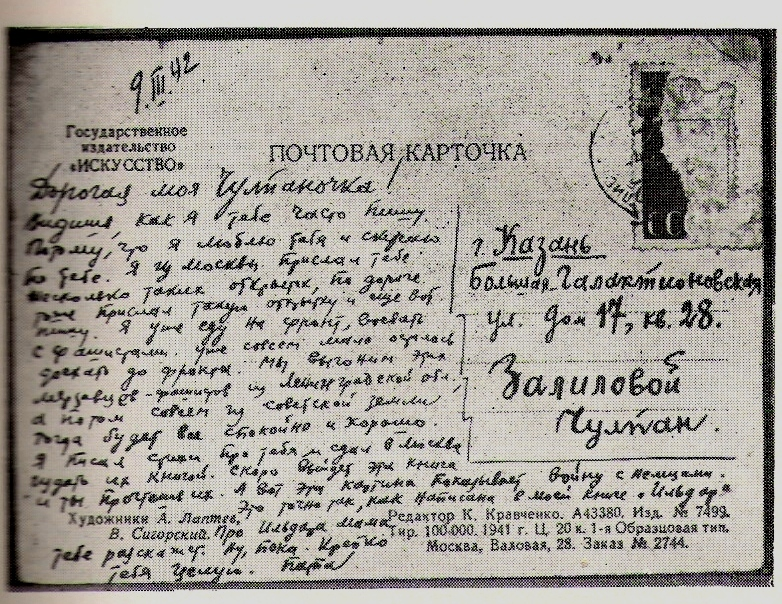 9.III.42
Государственное
издательство
«ИСКУССТВО»
ПОЧТОВАЯ КАРТОЧКА
Дорогая моя Чулпаночка!
Видишь, как я тебе часто пишу.
Потому, что я люблю тебя и скучаю
по тебе. Я из Москвы прислал тебе
несколько таких открыток, по дороге
тоже прислал такую открытку и еще вот
пишу. Я уже еду на фронт, воевать
с фашистами. Уже совсем мало осталось
доехать до фронта. Мы выгоним этих
мерзавцев-фашистов из Ленинградской обл,
а потом совсем из советской земли
тогда будет все спокойно и хорошо.
Я писал стихи про тебя и сдал в Москва
издать их книгой. Скоро выйдет эта книга
и ты прочтешь их. А вот эта картина показывает войну с немцами.
Это точно так, как написана в моей книге «Ильдар»
Про Ильдара мама
тебе расскажет. Ну, пока. Крепко
тебя целую. Папа
г. Казань
Большая-Галактионовская
ул. дом 17, кв. 28.
Залиловой
Чулпан.
Художники А. Лаптев,
В. Сигорский.
Редактор К. Кравченко. А43380. Изд. № 7499.
Тир. 100.000. 1941 г. Ц. 20 к. 1-я Образцовая тип.
Москва, Валовая, 28. Заказ № 2744.